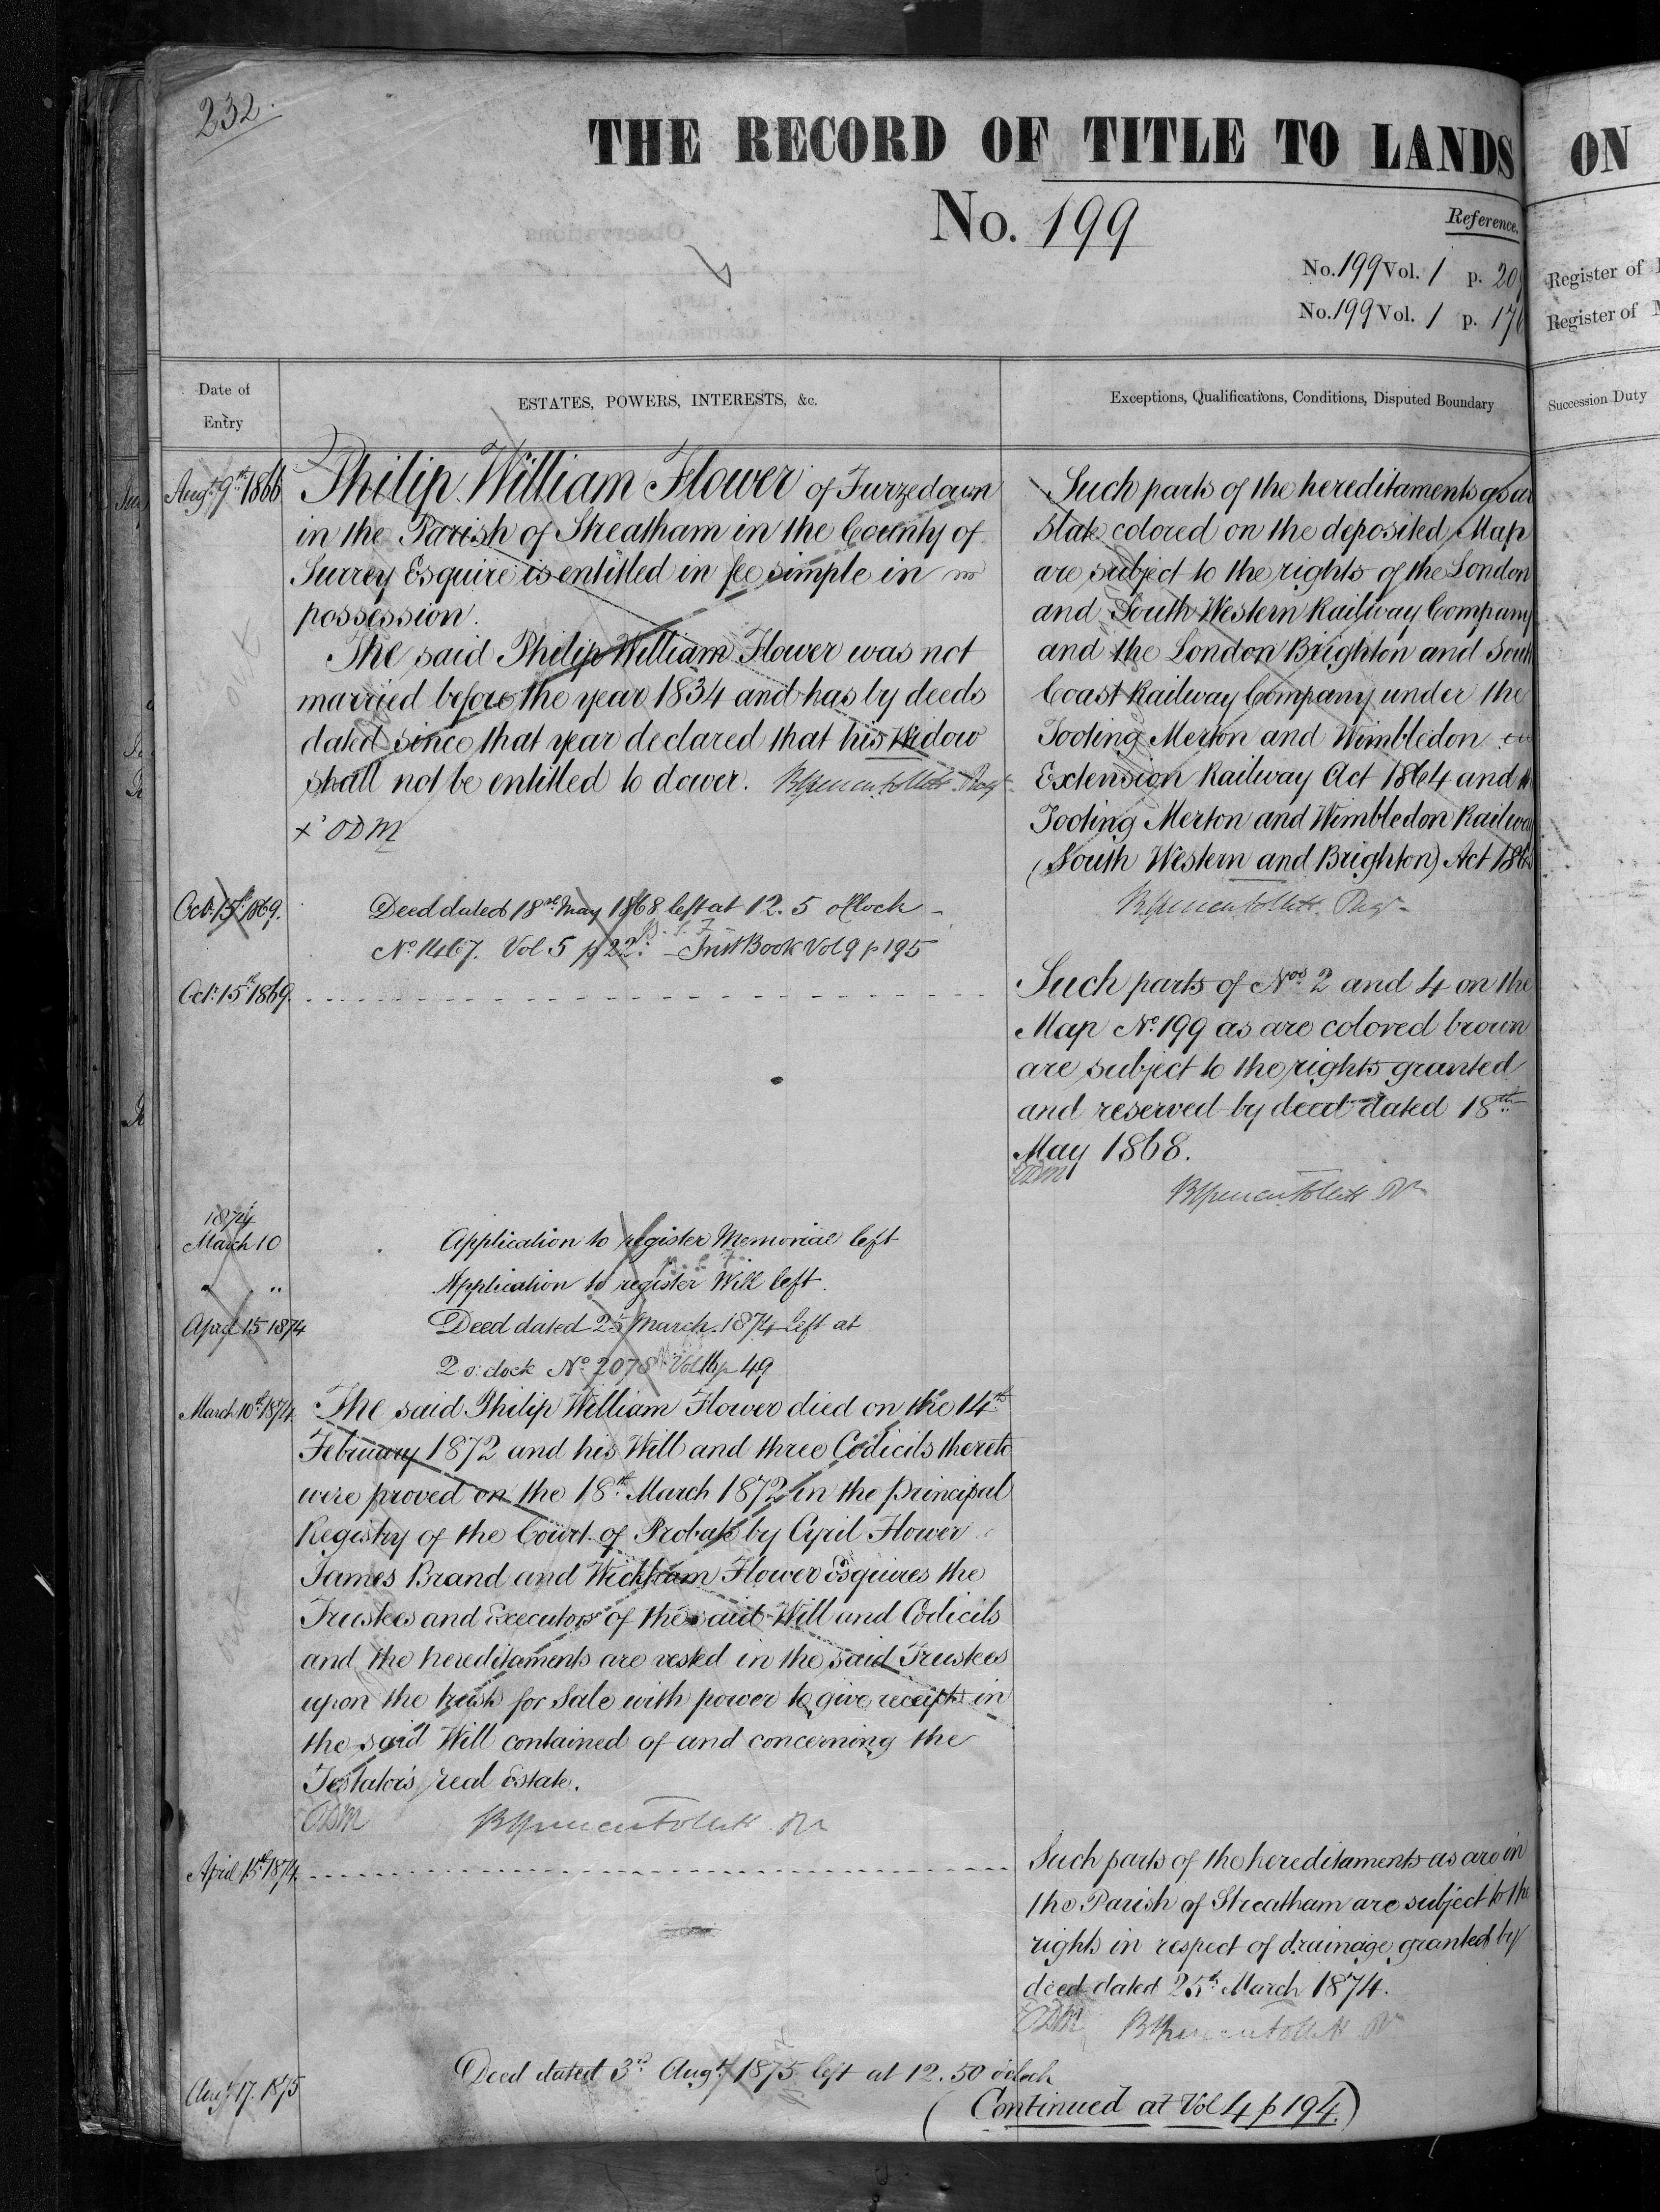 232.
THE RECORD OF TITLE TO LANDS
ON
No. 199
Reference.
No. 199 Vol. 1 p. 20
No. 199 Vol. 1 p. 176
Register of
Register of
Date of
Entry
ESTATES, POWERS, INTERESTS, &c.
Exceptions, Qualifications, Conditions, Disputed Boundary
Succession Duty
Augt. 9th 1866
Philip William Flower of Furzedown
in the Parish of Streatham in the County of
Surrey Esquire is entitled in fee simple in
possession.
The said Philip William Flower was not
married before the year 1834 and has by deeds
dated since that year declared that his Widow
shall not be entitled to dower.
x ODM
Such parts of the hereditaments as are
slate colored on the deposited Map
are subject to the rights of the London
and South Western Railway Company
and the London Brighton and South
Coast Railway Company under the
Tooting Merton and Wimbledon
Extension Railway Act 1864 and the
Tooting Merton and Wimbledon Railway
(South Western and Brighton) Act 1865
Oct. 15th 1869.
Deed dated 18th May 1868 left at 12.5 oClock
No. 1467. Vol 5 p 22. Inst Book Vol 9 p 195
Oct. 15th 1869.
Such parts of Nos 2 and 4 on the
Map No. 199 as are colored brown
are subject to the rights granted
and reserved by deed dated 18th
May 1868.
ODM
1874
March 10
Application to register Memorial left
" "
Application to register Will left.
April 15 1874
Deed dated 25 March. 1874 left at
2 o'clock No. 2078 Vol 11 p 49
March 10th 1874.
The said Philip William Flower died on the 14th
February 1872 and his Will and three Codicils thereto
were proved on the 18th March 1872 in the Principal
Registry of the Court of Probate by Cyril Flower
James Brand and Wickham Flower Esquires the
Trustees and Executors of the said Will and Codicils
and the hereditaments are vested in the said Trustees
upon the trusts for Sale with power to give receipts in
the said Will contained of and concerning the
Testator's real Estate.
ODM
April 15th 1874.
Such parts of the hereditaments as are in
the Parish of Streatham are subject to the
rights in respect of drainage granted by
deed dated 25th March 1874.
ODM
Aug. 17. 1875
Deed dated 3rd Augt. 1875 left at 12.50 oclock
(Continued at Vol 4 p 194.)